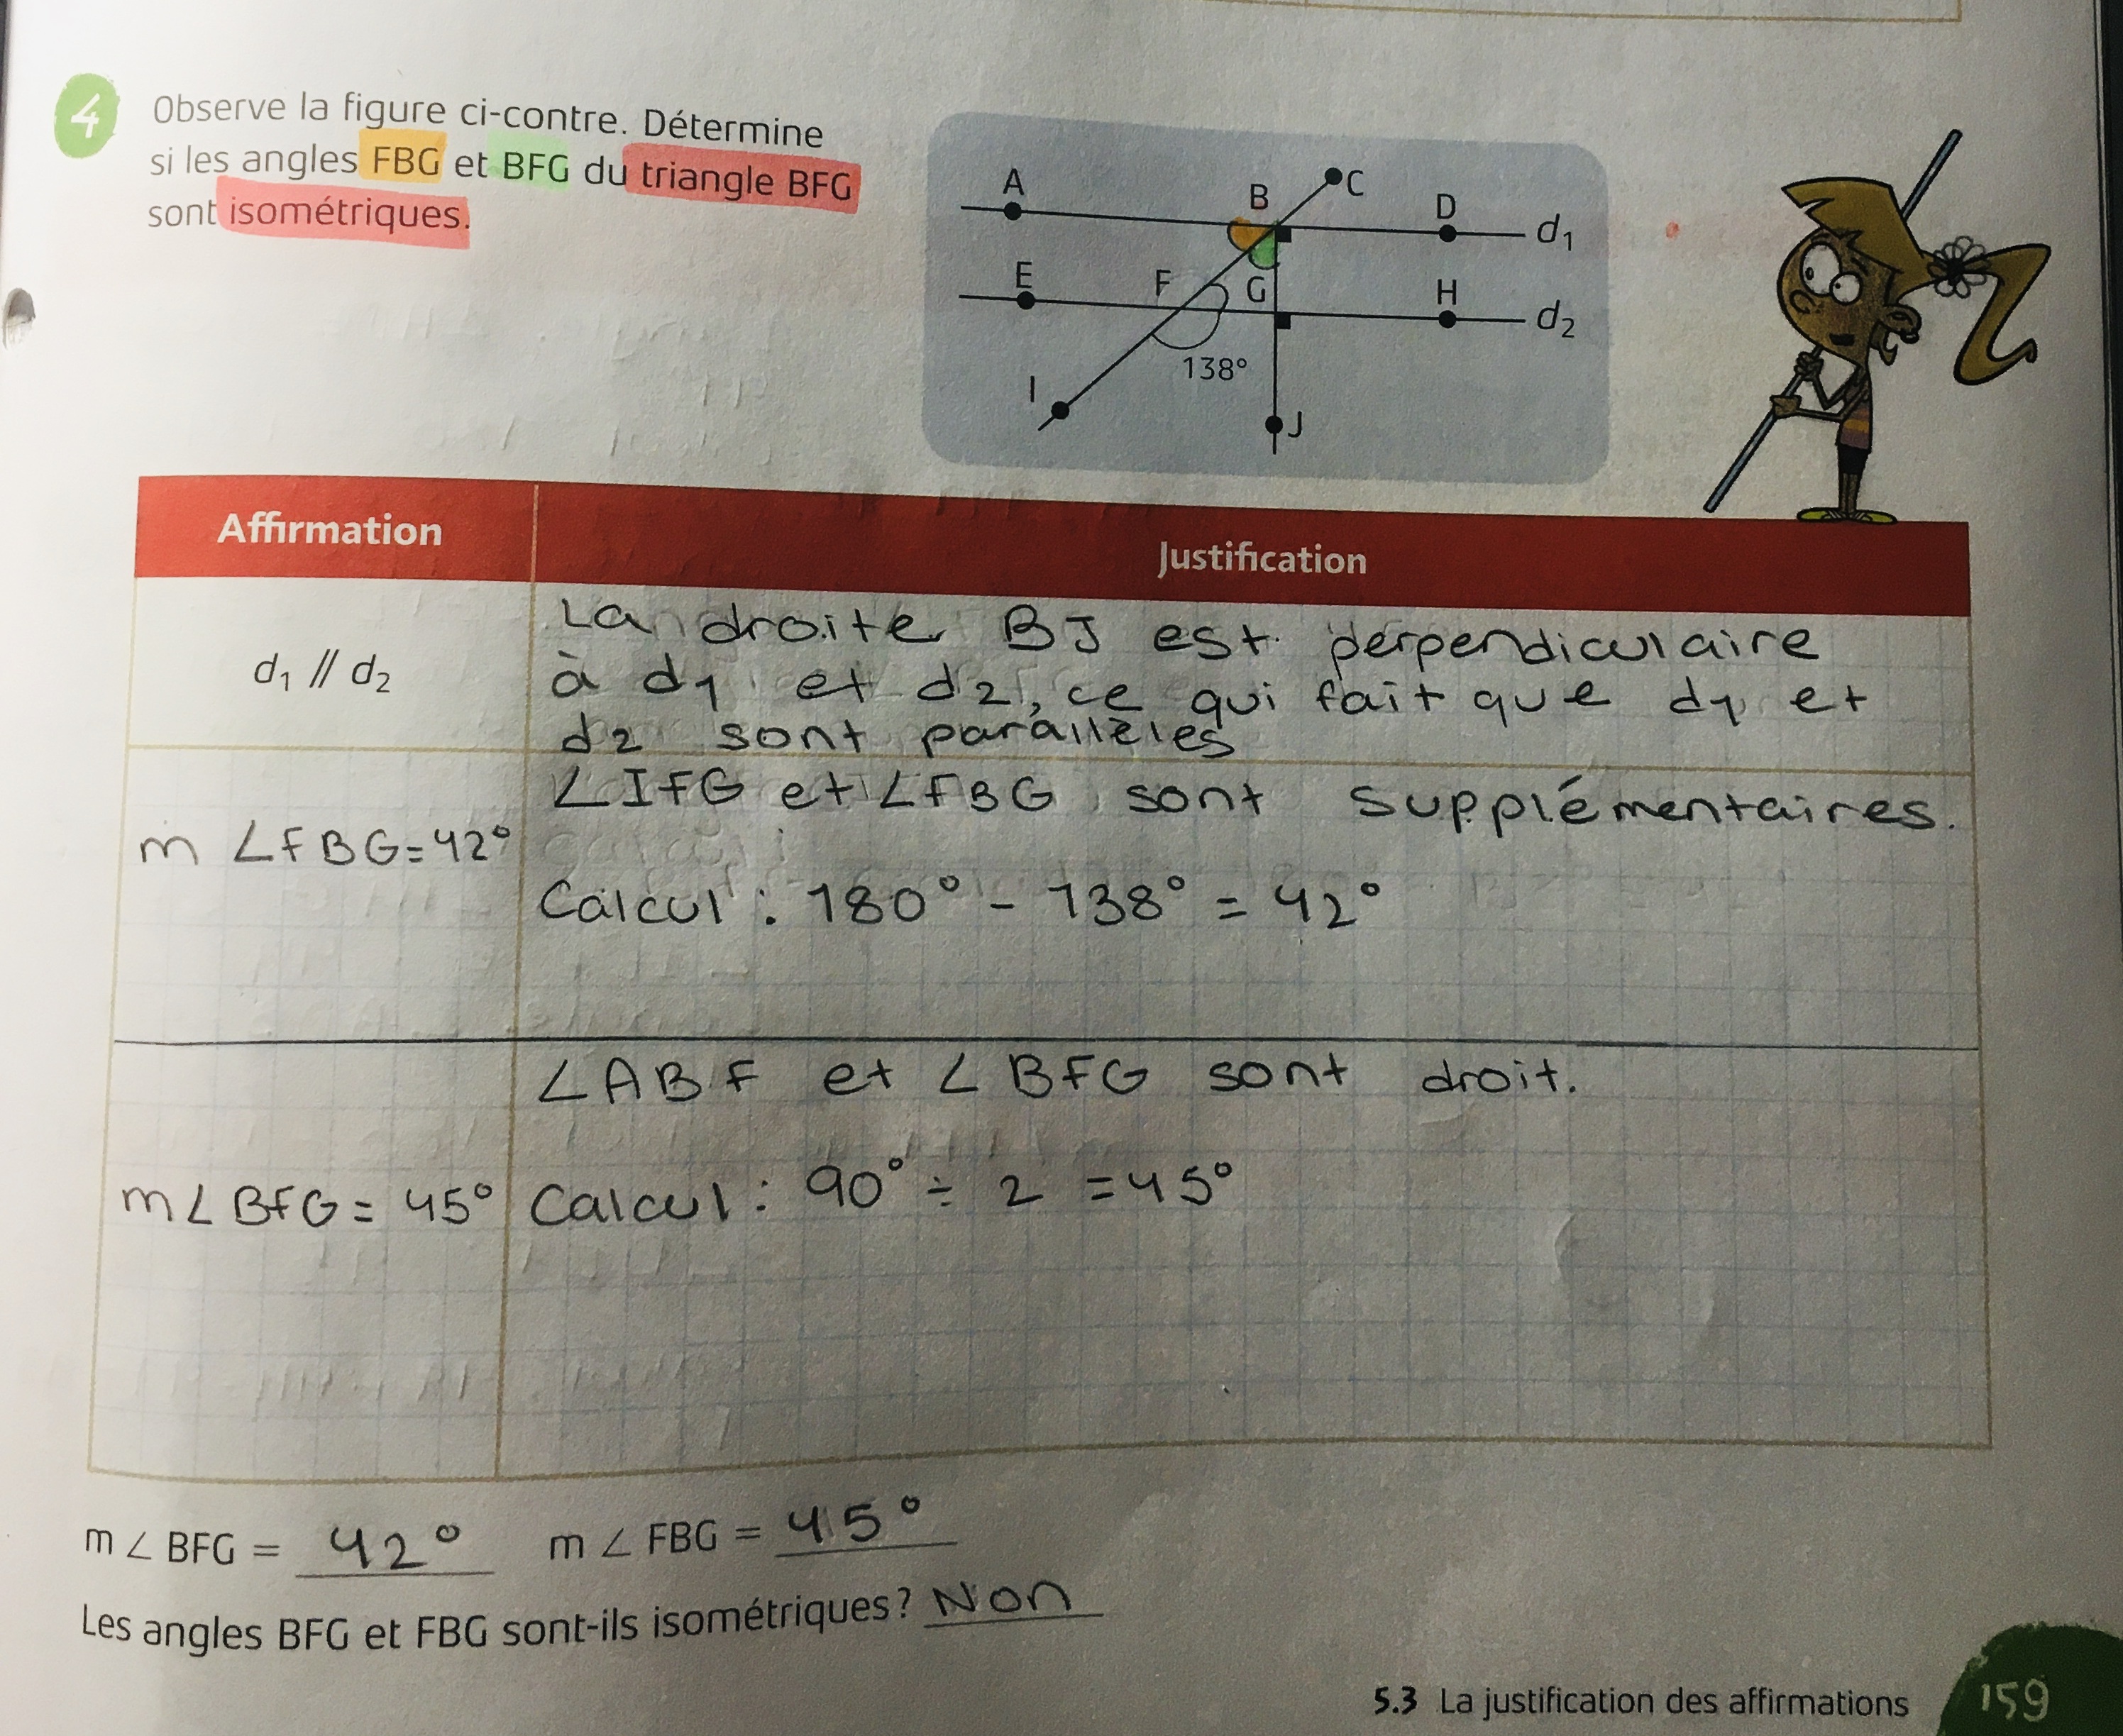 4
Observe la figure ci-contre. Détermine
si les angles FBG et BFG du triangle BFG
sont isométriques.
A B C D d1
E F G H d2
138°
I J
Affirmation Justification
d1 // d2
La droite BJ est perpendiculaire
à d1 et d2, ce qui fait que d1 et
d2 sont parallèles
m ∠FBG=42°
∠IFG et ∠FBG sont supplémentaires.
Calcul : 180° - 138° = 42°
∠ABF et ∠BFG sont droit.
m∠BFG = 45° Calcul : 90° ÷ 2 = 45°
m ∠ BFG = 42° m ∠ FBG = 45°
Les angles BFG et FBG sont-ils isométriques? Non
5.3 La justification des affirmations 159